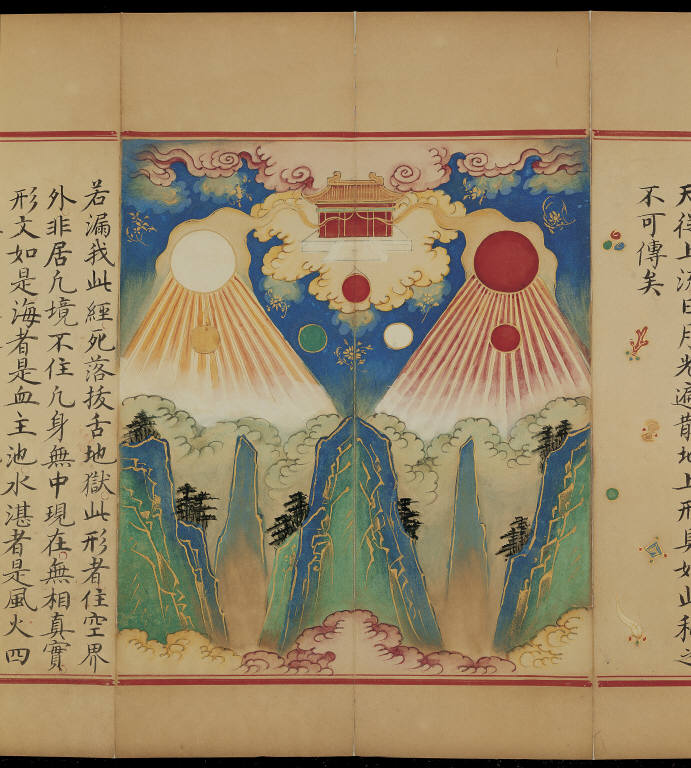 天往上流日月光遍散地上形具如此秘之
不可傳矣
若漏我此經死落拔舌地獄此形者住空界
外非居凡境不住凡身無中現在無相真實
形文如是海者是血主池水湛者是風火四